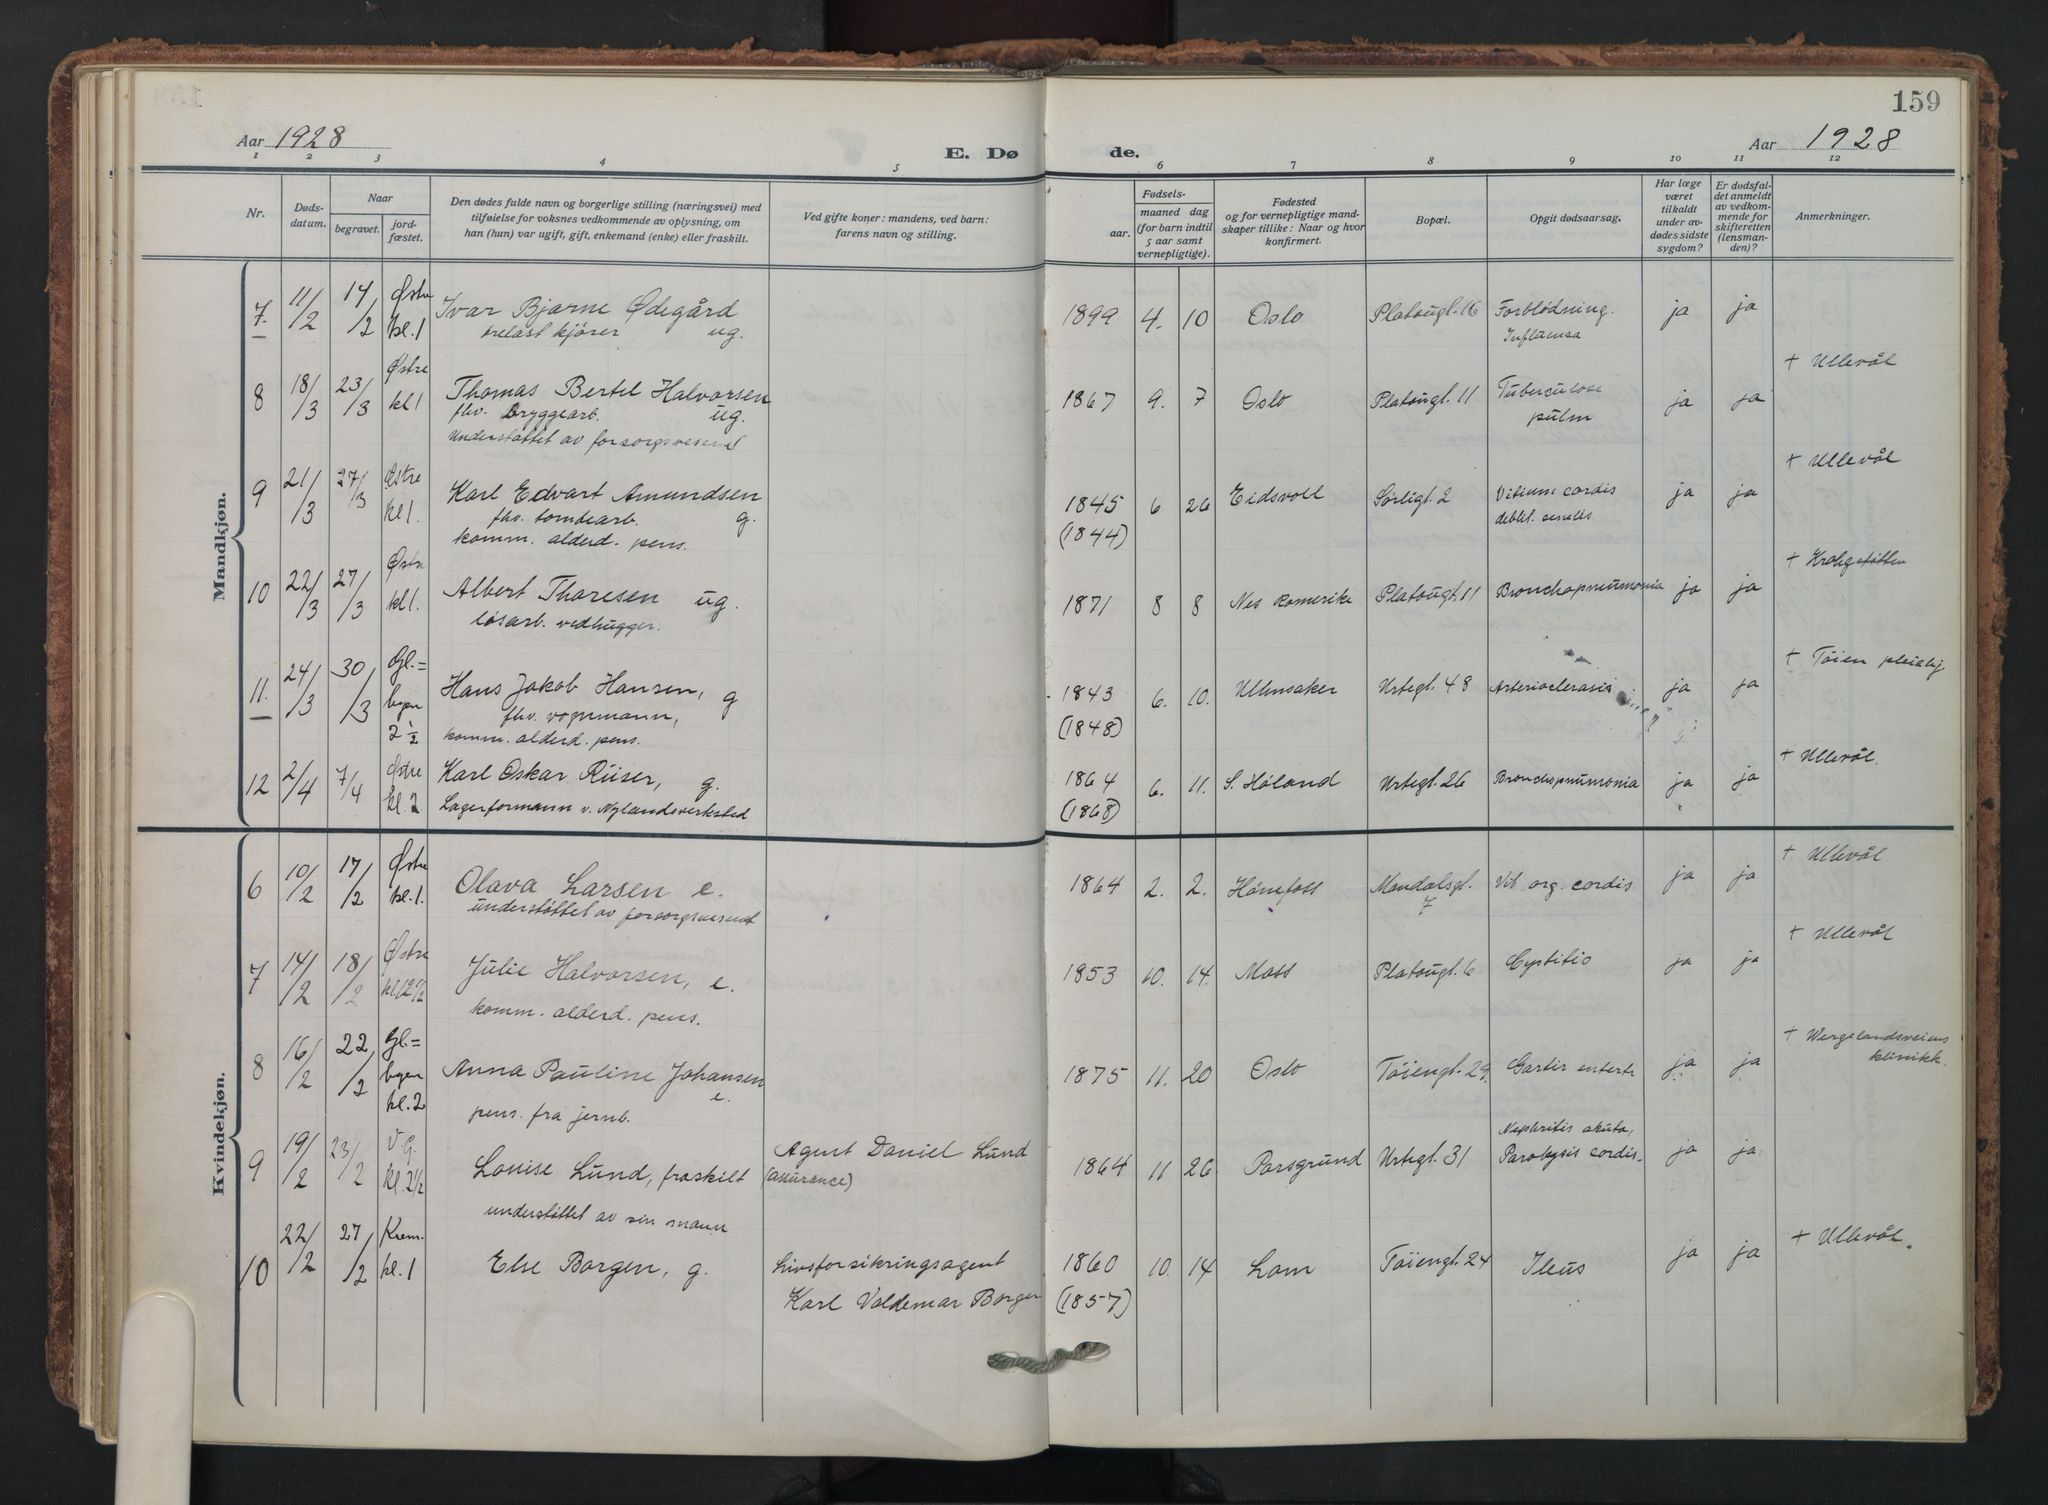 159
Aar 1928
E. Dø de.
Aar 1928
1 2 3 4 5 6 7 8 9 10 11 12
Nr.
Døds-
datum.
Naar
begravet.
jord-
fæstet.
Den dødes fulde navn og borgerlige stilling (næringsvei) med
tilføielse for voksnes vedkommende av oplysning, om
han (hun) var ugift, gift, enkemand (enke) eller fraskilt.
Ved gifte koner: mandens, ved barn:
farens navn og stilling.
Fødsels-
aar.
maaned dag
(for barn indtil
5 aar samt
vernepligtige).
Fødested
og for vernepligtige mand-
skaper tillike: Naar og hvor
konfirmert.
Bopæl.
Opgit dødsaarsag.
Har læge
været
tilkaldt
under av-
dødes sidste
sygdom?
Er dødsfal-
det anmeldt
av vedkom-
mende for
skifteretten
(lensman-
den)?
Anmerkninger.
Mandkjøn.
7. 11/2 14/2 Østre kl. 1 Ivar Bjarne Ødegård 1899 4. 10 Oslo Platougt. 16 Forblødning. ja ja
trelast kjører ug. Influensa
8 18/3 23/3 Østre kl 1 Thomas Bertel Halvorsen 1867 9. 7 Oslo Platougt. 11 Tuberculose ja ja + Ullevål
fhv. bryggearb. ug. pulm
Understøttet av forsorgsvesenet
9 21/3 27/3 Østre kl 1. Karl Edvart Amundsen 1845 6 26 Eidsvoll Sørligt. 2 Vitium cordis ja ja + Ullevål
fhv. tomtearb. g. (1844) debil. senilis
komm. alderd. pens.
10 22/3 27/3 Østre kl 1. Albert Thoresen ug. 1871 8 8 Nes Romerike Platougt. 11 Bronchopneumonia ja ja + Krohgstøtten
løsarb. vedhugger.
11. 24/3 30/3 Gl.= byen 2 ½ Hans Jakob Hansen, g 1843 6. 10. Ullensaker Urtegt. 48 Arteriosclerosis ja ja + Tøien pleiehj
fhv. vognmann, (1848)
komm. alderd. pens.
12 2/4 7/4 Østre kl. 2 Karl Oskar Riiser, g. 1864 6. 11. S. Høland Urtegt. 26 Bronchopnumonia ja ja + Ullevål.
Lagerformann v. Nylandsverksted (1868)
Kvindekjøn.
6 10/2 17/2 Østre kl. 1. Olava Larsen e. 1864 2. 2. Hønefoss Mandalsgt. 7 Vit org. cordis ja ja + Ullevål
understøttet av forsorgsvesenet
7 14/2 18/2 Østre kl. 12½ Julie Halvorsen, e. 1853 10. 14. Moss Platougt. 6 Cystitis ja ja + Ullevål
komm. alderd. pens.
8 16/2 22/2 Gl.= byen kl. 2 Anna Pauline Johansen 1875 11. 20 Oslo Tøiengt. 29. Gastir enterte ja ja + Wergelandsveiens
e. klinikk.
pens. fra jernb.
9 19/2 23/2 V. G. kl. 2½ Louise Lund, fraskilt Agent Daniel Lund 1864 11 26 Porsgrund Urtegt. 31 Nephritis akuta, ja ja
(assurance) Paralysis cordis.
understøttet av sin mann
10 22/2 27/2 Krem. kl. 1 Else Borgen, g. Livsforsikringsagent 1860 10. 14 Lom Tøiengt. 24 Ileus ja ja + Ullevål.
Karl Valdemar Borgen (1857)